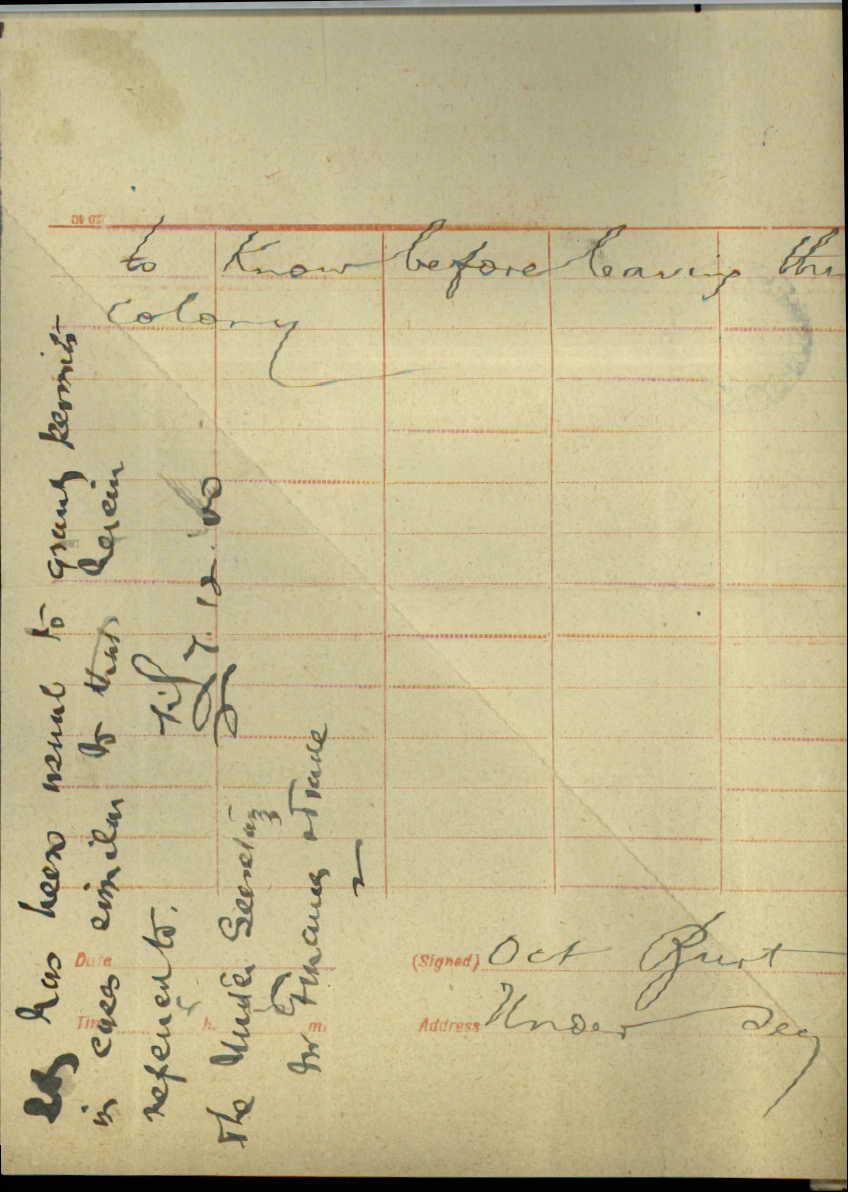 to Know before leaving this
colony
Date
Time h. m.
(Signed) Oct Burt
Address Under Secy
It has been usual to grant permits
in cases similar to that herein
referred to.
7.12.00
The Under Secretary
for Finance & Trade